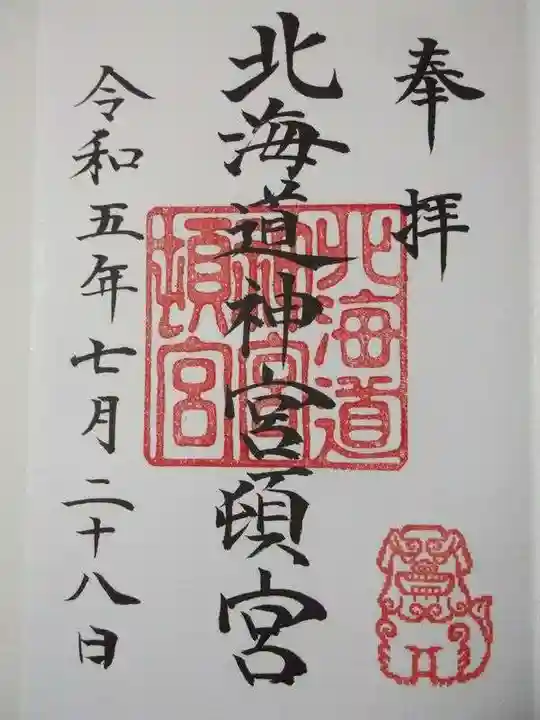 奉拝
北海道神宮頓宮
令和五年七月二十八日
北海道
神宮
頓宮